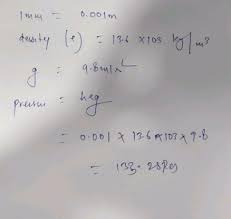 1mm = 0.001m
density (ρ) = 13.6 × 103 kg/m3
g = 9.8m/s2
pressure = hρg
= 0.001 × 13.6 × 103 × 9.8
= 133.28 Pa